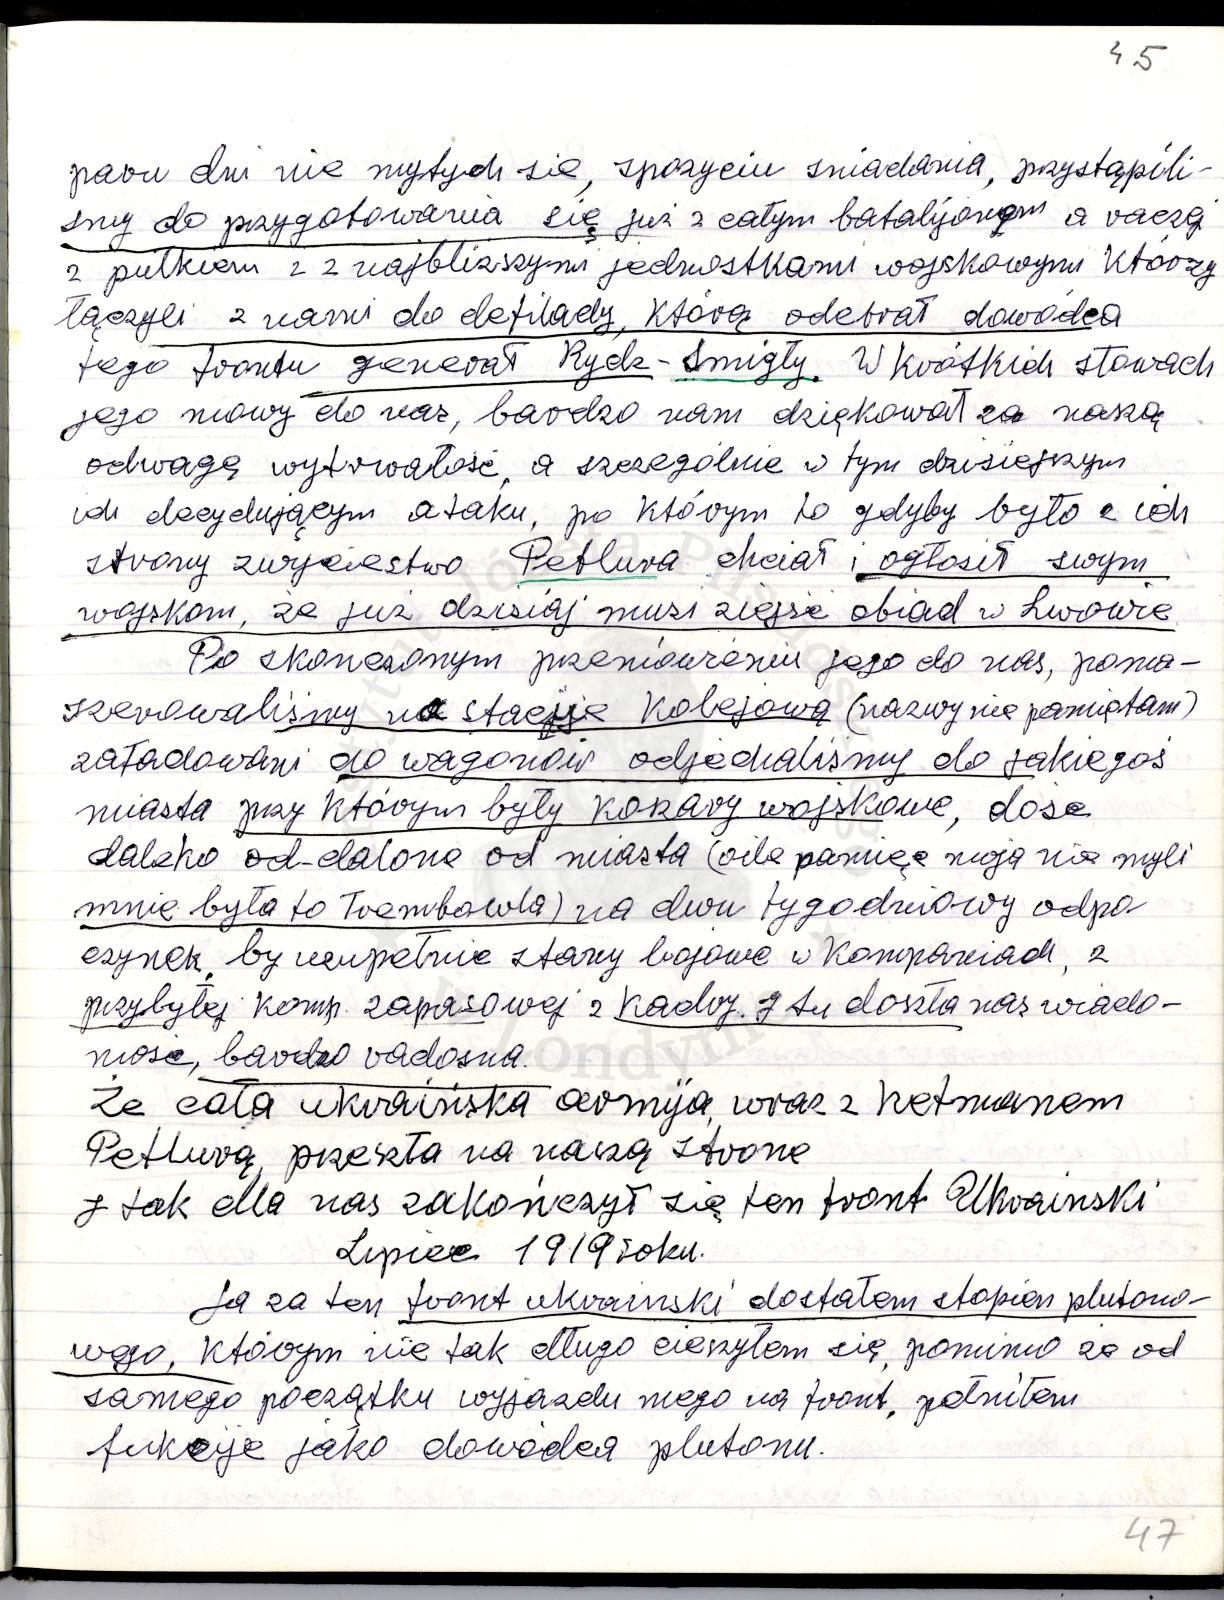 45
paru dni nie mytych się, spożyciu sniadania, przystąpili-
smy do przygotowania się już z całym batalijonem a raczej
z pułkiem i z najbliższymi jednostkami wojskowymi którzy
łączyli z nami do defilady, którą odebrał dowódca
tego frontu generał Rydz-Smigły. W krótkich słowach
jego mowy do nas, bardzo nam dziękował za naszą
odwagę wytrwałość, a szczególnie w tym dzisiejszym
ich decydującym ataku, po którym to gdyby było z ich
strony zwycięstwo Petlura chciał i ogłosił swym
wojskom, że już dzisiaj musi ziejść obiad w Lwowie
Po skonczonym przemówieniu jego do nas, poma-
szerowaliśmy na stacjje kolejową (nazwy nie pamiętam)
załadowani do wagonów odjechaliśmy do jakiegoś
miasta przy którym były kozary wojskowe, dość
daleko od-dalone od miasta (oile pamięć moja nie myli
mnie była to Trembowla) na dwu tygodniowy odpo
czynek, by uzupełnić stany bojowe w kompaniach, z
przybyłej komp. zapasowej z kadry. J tu doszła nas wiado-
mość, bardzo radosna.
Że cała ukraińska armija, wraz z hetmanem
Petlurą, przeszła na naszą strone
J tak dla nas zakończył się ten front Ukrainski
Lipiec 1919 roku.
Ja za ten front ukrainski dostałem stopien plutono-
wego, którym nie tak długo cieszyłem się, pomimo że od
samego początku wyjazdu mego na front, pełniłem
fukcije jako dowódca plutonu.
47
Instytut Józefa Piłsudskiego
Londyn